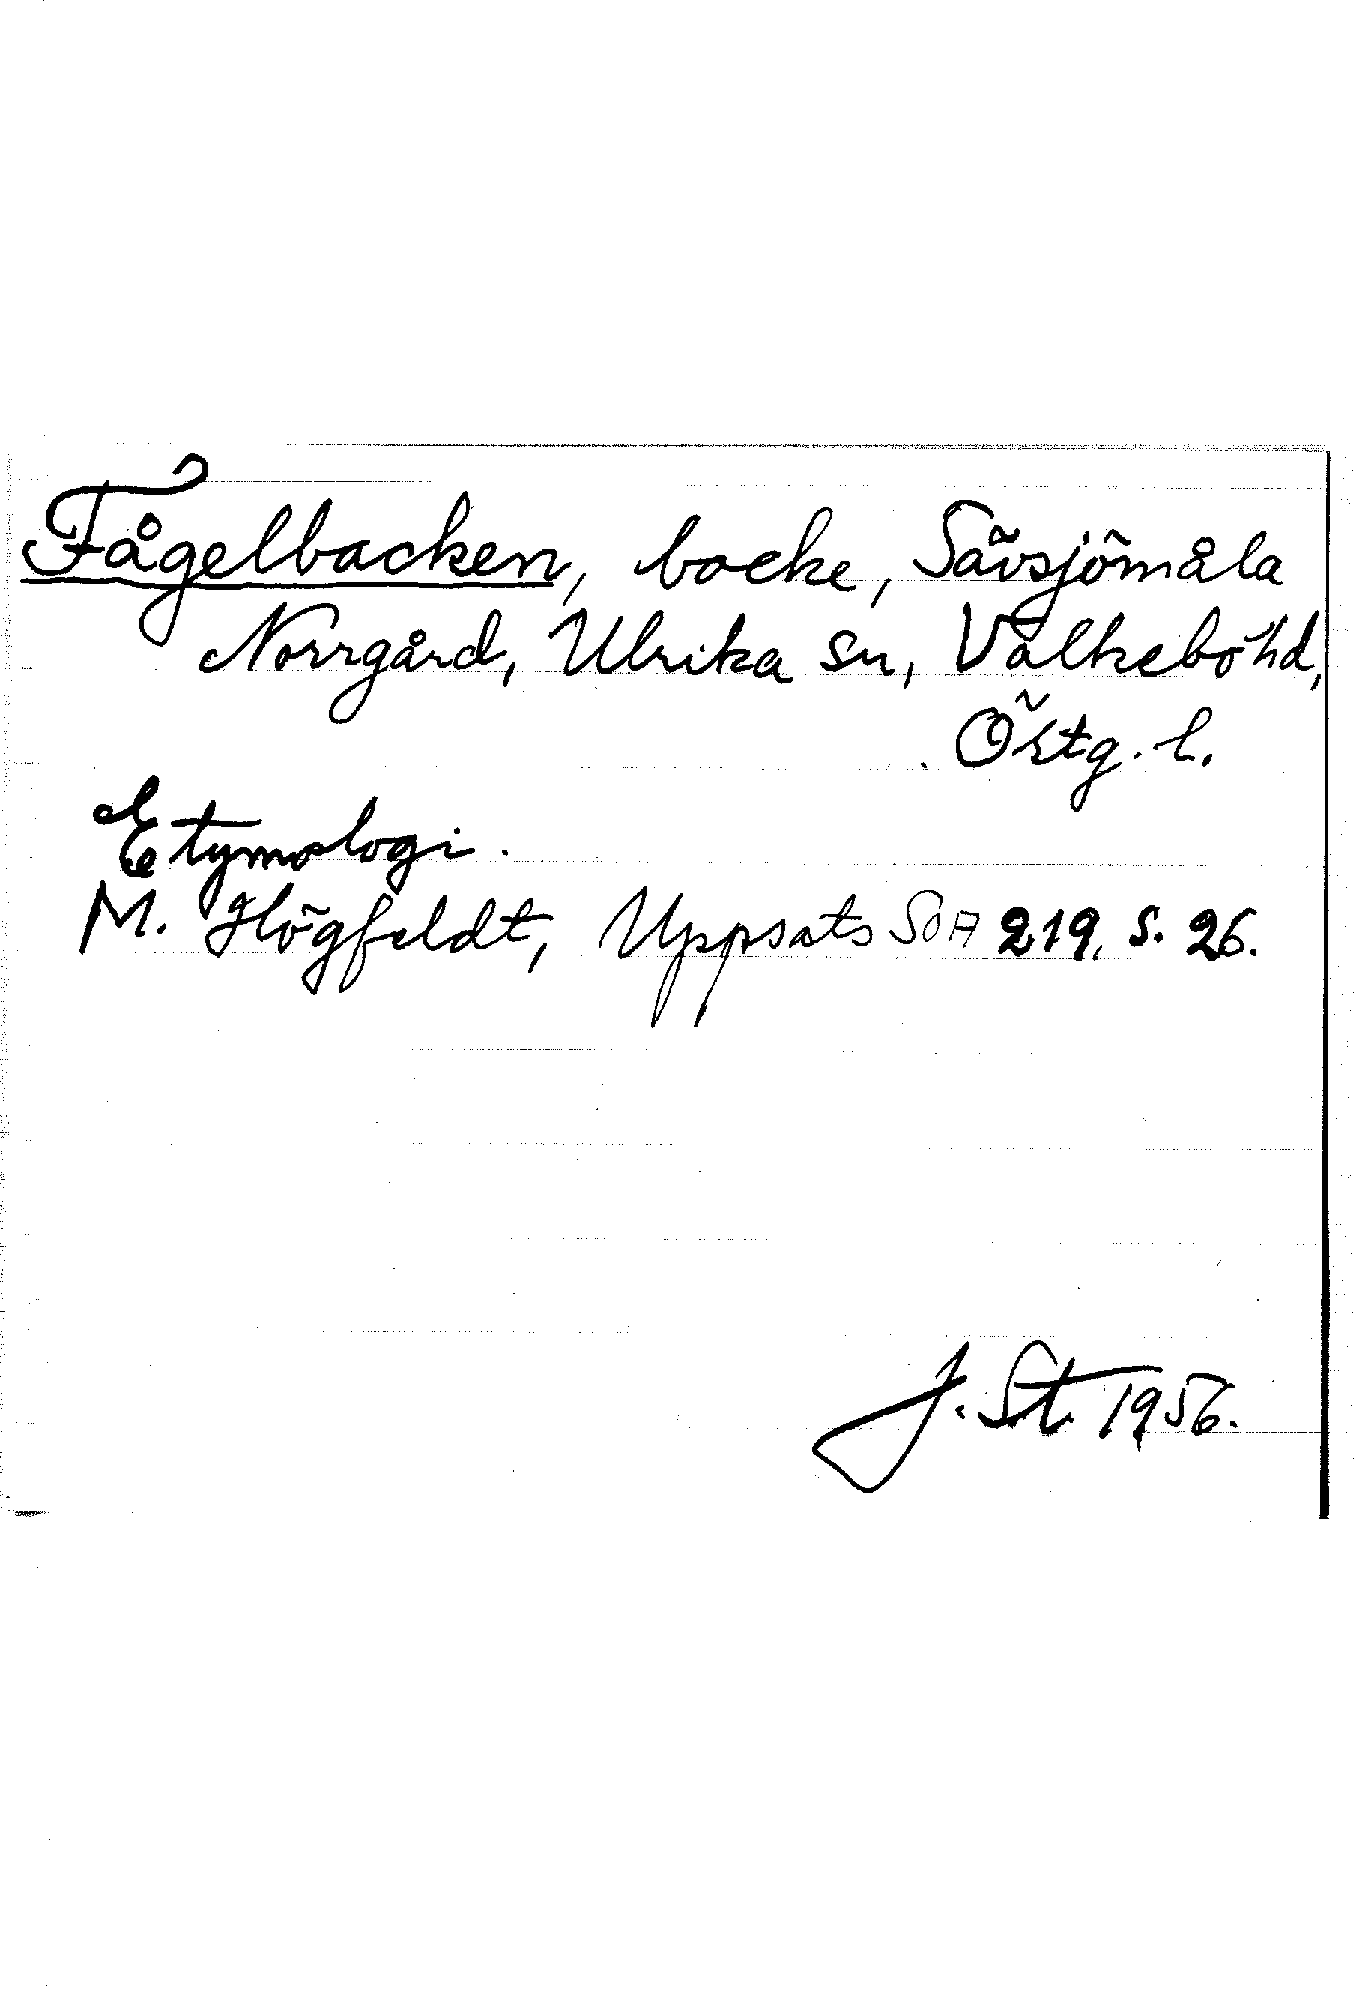 Fågelbacken, backe, Sävsjömåla
Norrgård, Ulrika sn, Valkebo hd,
Östg. l.
Etymologi.
M. Högfeldt, Uppsats SOA 219. s. 26.
J. St. 1956.